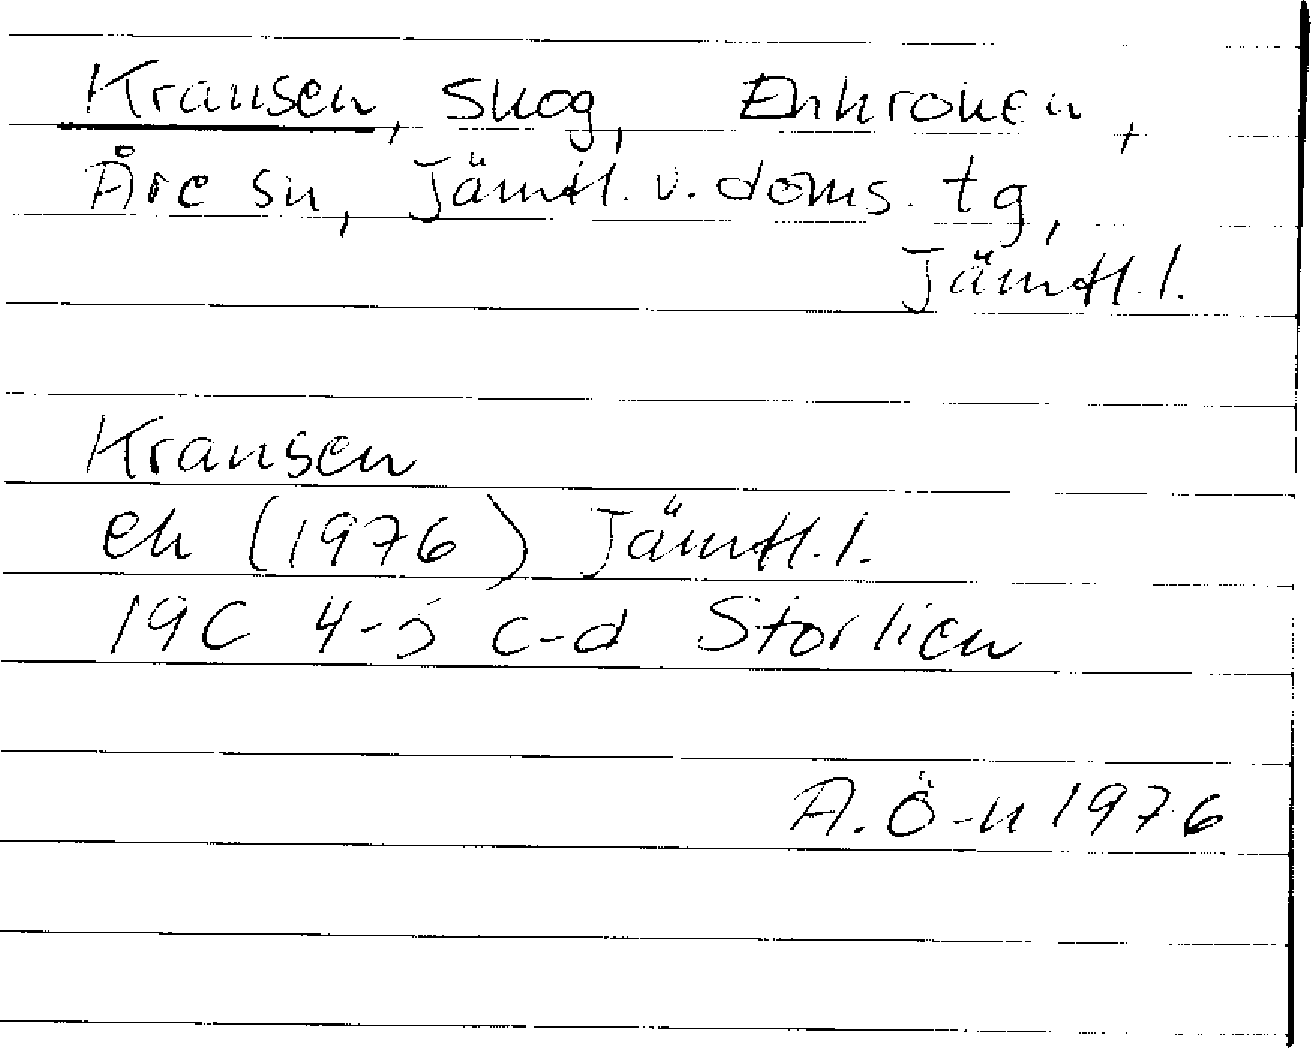 Kransen, skog, Enkroken,
Åre sn, Jämtl. v. doms. tg,
Jämtl. l.
Kransen
ek (1976) Jämtl. l.
19C 4-5 c-d Storlien
A. Ö-n 1976